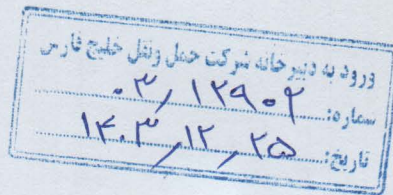 ورود به دبیرخانه شرکت حمل ونقل خلیج فارس
شماره: ۰۳/۱۲۹۰۲
تاریخ: ۱۴۰۳/۱۲/۲۵